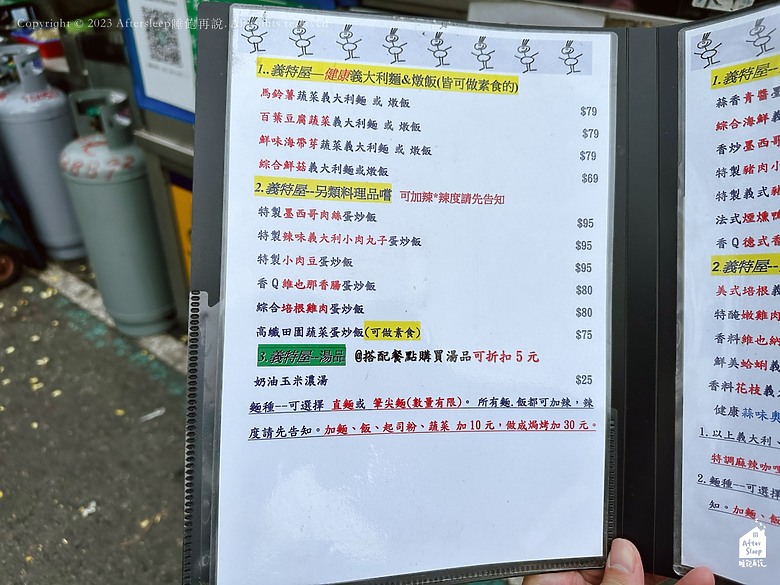 Copyright © 2023 Aftersleep睡飽再說. All rights reserved
1..義特屋—健康義大利麵&燉飯(皆可做素食的)
馬鈴薯蔬菜義大利麵 或 燉飯 $79
百葉豆腐蔬菜義大利麵 或 燉飯 $79
鮮味海帶芽義大利麵 或 燉飯 $79
綜合鮮菇義大利麵或燉飯 $69
2.義特屋--另類料理品嚐 可加辣*辣度請先告知
特製墨西哥肉絲蛋炒飯 $95
特製辣味義大利小肉丸子蛋炒飯 $95
特製小肉豆蛋炒飯 $95
香Q維也那香腸蛋炒飯 $80
綜合培根雞肉蛋炒飯 $80
高纖田園蔬菜蛋炒飯(可做素食) $75
3.義特屋--湯品 @搭配餐點購買湯品可折扣 5 元
奶油玉米濃湯 $25
麵種--可選擇 直麵或 筆尖麵(數量有限)。 所有麵.飯都可加辣，辣
度請先告知。加麵、飯、起司粉、蔬菜 加 10 元，做成焗烤加 30 元。
1.義特屋-
蒜香青醬
綜合海鮮義
香炒墨西哥
特製豬肉小
特製義式豬
法式煙燻鴨
香Q德式香
2.義特屋-
美式培根義
特醃嫩雞肉
香料維也納
鮮美蛤蜊義
香料花枝義
健康蒜味奧
1.以上義大利、
特調麻辣咖哩
2.麵種--可選擇
知。加麵、飯
After
Sleep
睡飽再說